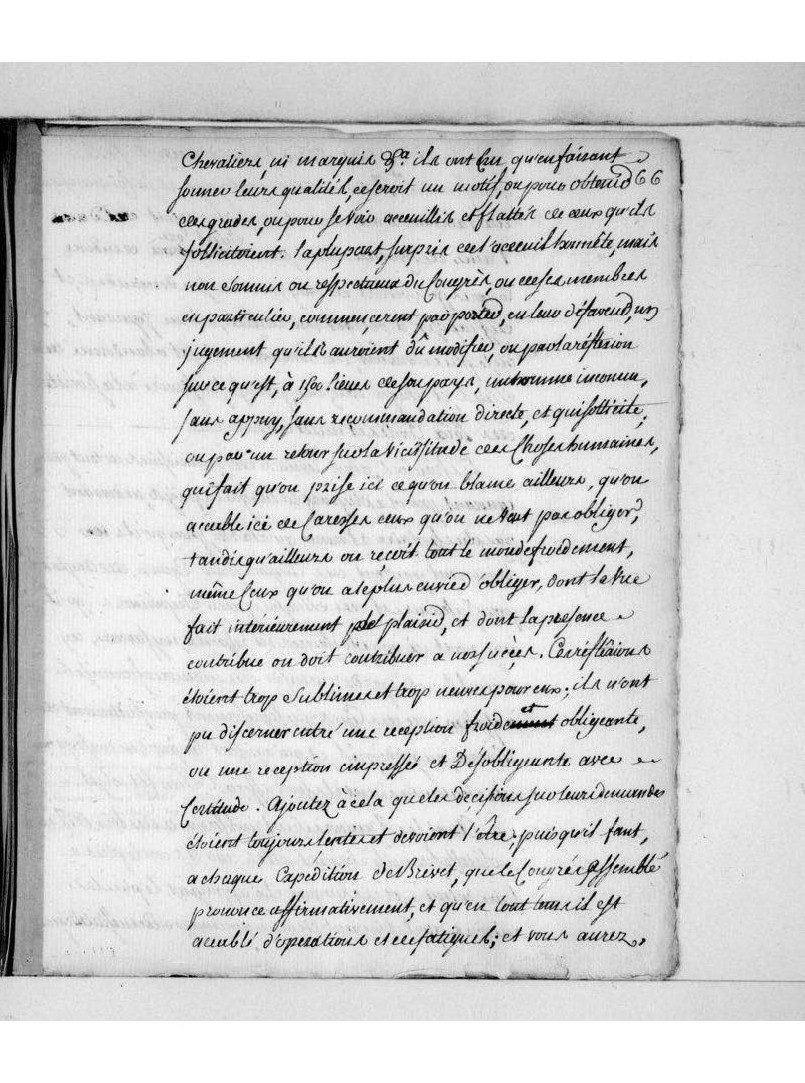 Chevaliers, ni marquis &a. ils ont cru, qu'en faisant
sonner leurs qualités, ce seroit un motif, ou pour obtenir 66
des grades, ou pour se voir acceuillis et flattés de ceux qu'ils
sollicitoient. la plupart, surpris de l'acceuil honnête, mais
non soumis ou respectueux du Congrès, ou de ses membres
en particulier, commencerent par porter, en leur défaveur, un
jugement qu'ils auroient dû modifier, ou par la réflexion
sur ce qu'est, à 1500 lieues de son pays, un homme inconnu,
sans appuy, sans recommandation directe, et qui sollicite;
ou par un retour sur la vicissitude des Choses humaines,
qui fait qu'on prise ici ce qu'on blame ailleurs, qu'on
accable ici de Caresses ceux qu'on ne veut pas obliger,
tandis qu'ailleurs on reçoit tout le monde froidement,
même Ceux qu'on a le plus envie d'obliger, dont la vue
fait intérieurement plaisir, et dont la présence
contribue ou doit contribuer a nos succès. Ces réflexions
étoient trop sublimes et trop neuves pour eux; ils n'ont
pu discerner entre une reception froide et obligeante,
ou une reception empressée et Désobligeante avec
Certitude. Ajoutez à cela que les décisions sur leurs demandes
étoient toujours lentes et devoient l'être, puisqu'il faut,
a chaque Expédition de Brevet, que le Congrès assemblé
prononce affirmativement, et qu'en tout tems il est
accablé d'operations et de fatigues; et vous aurez